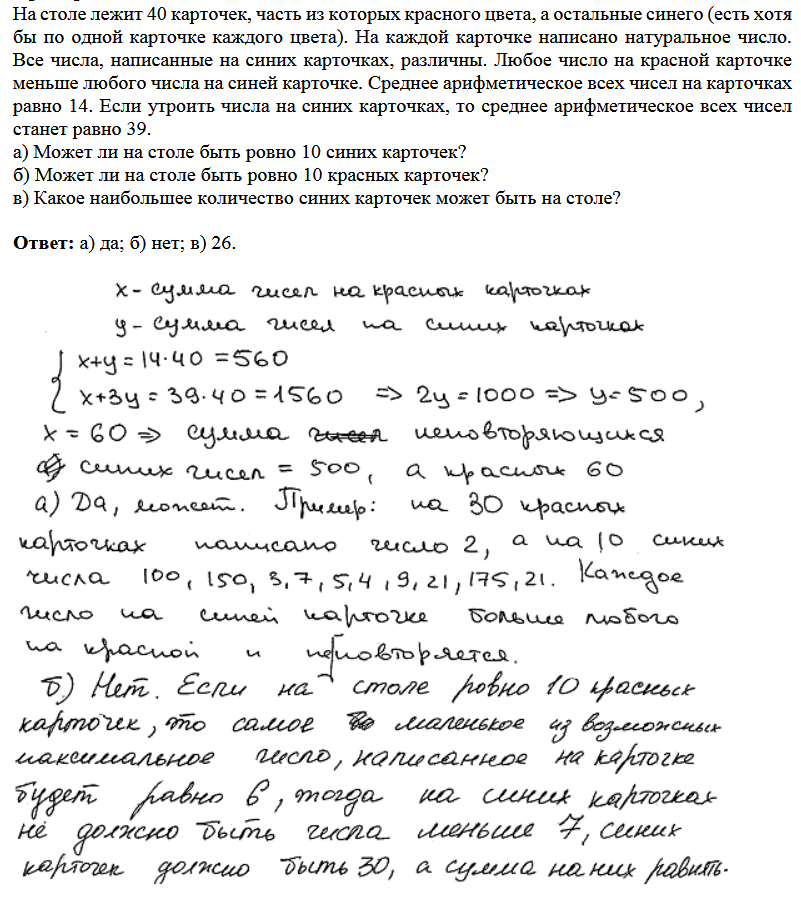 На столе лежит 40 карточек, часть из которых красного цвета, а остальные синего (есть хотя
бы по одной карточке каждого цвета). На каждой карточке написано натуральное число.
Все числа, написанные на синих карточках, различны. Любое число на красной карточке
меньше любого числа на синей карточке. Среднее арифметическое всех чисел на карточках
равно 14. Если утроить числа на синих карточках, то среднее арифметическое всех чисел
станет равно 39.
а) Может ли на столе быть ровно 10 синих карточек?
б) Может ли на столе быть ровно 10 красных карточек?
в) Какое наибольшее количество синих карточек может быть на столе?
Ответ: а) да; б) нет; в) 26.
x - сумма чисел на красных карточках
y - сумма чисел на синих карточках
{ x+y = 14·40 = 560
x+3y = 39·40 = 1560 => 2y = 1000 => y = 500,
x = 60 => сумма чисел неповторяющихся
синих чисел = 500, а красных 60
а) Да, может. Пример: на 30 красных
карточках написано число 2, а на 10 синих
числа 100, 150, 3, 7, 5, 4, 9, 21, 175, 21. Каждое
число на синей карточке больше любого
на красной и неповторяется.
б) Нет. Если на столе ровно 10 красных
карточек, то самое маленькое из возможных
максимальное число, написанное на карточке
будет равно 6, тогда на синих карточках
не должно быть числа меньше 7, синих
карточек должно быть 30, а сумма на них равнять.